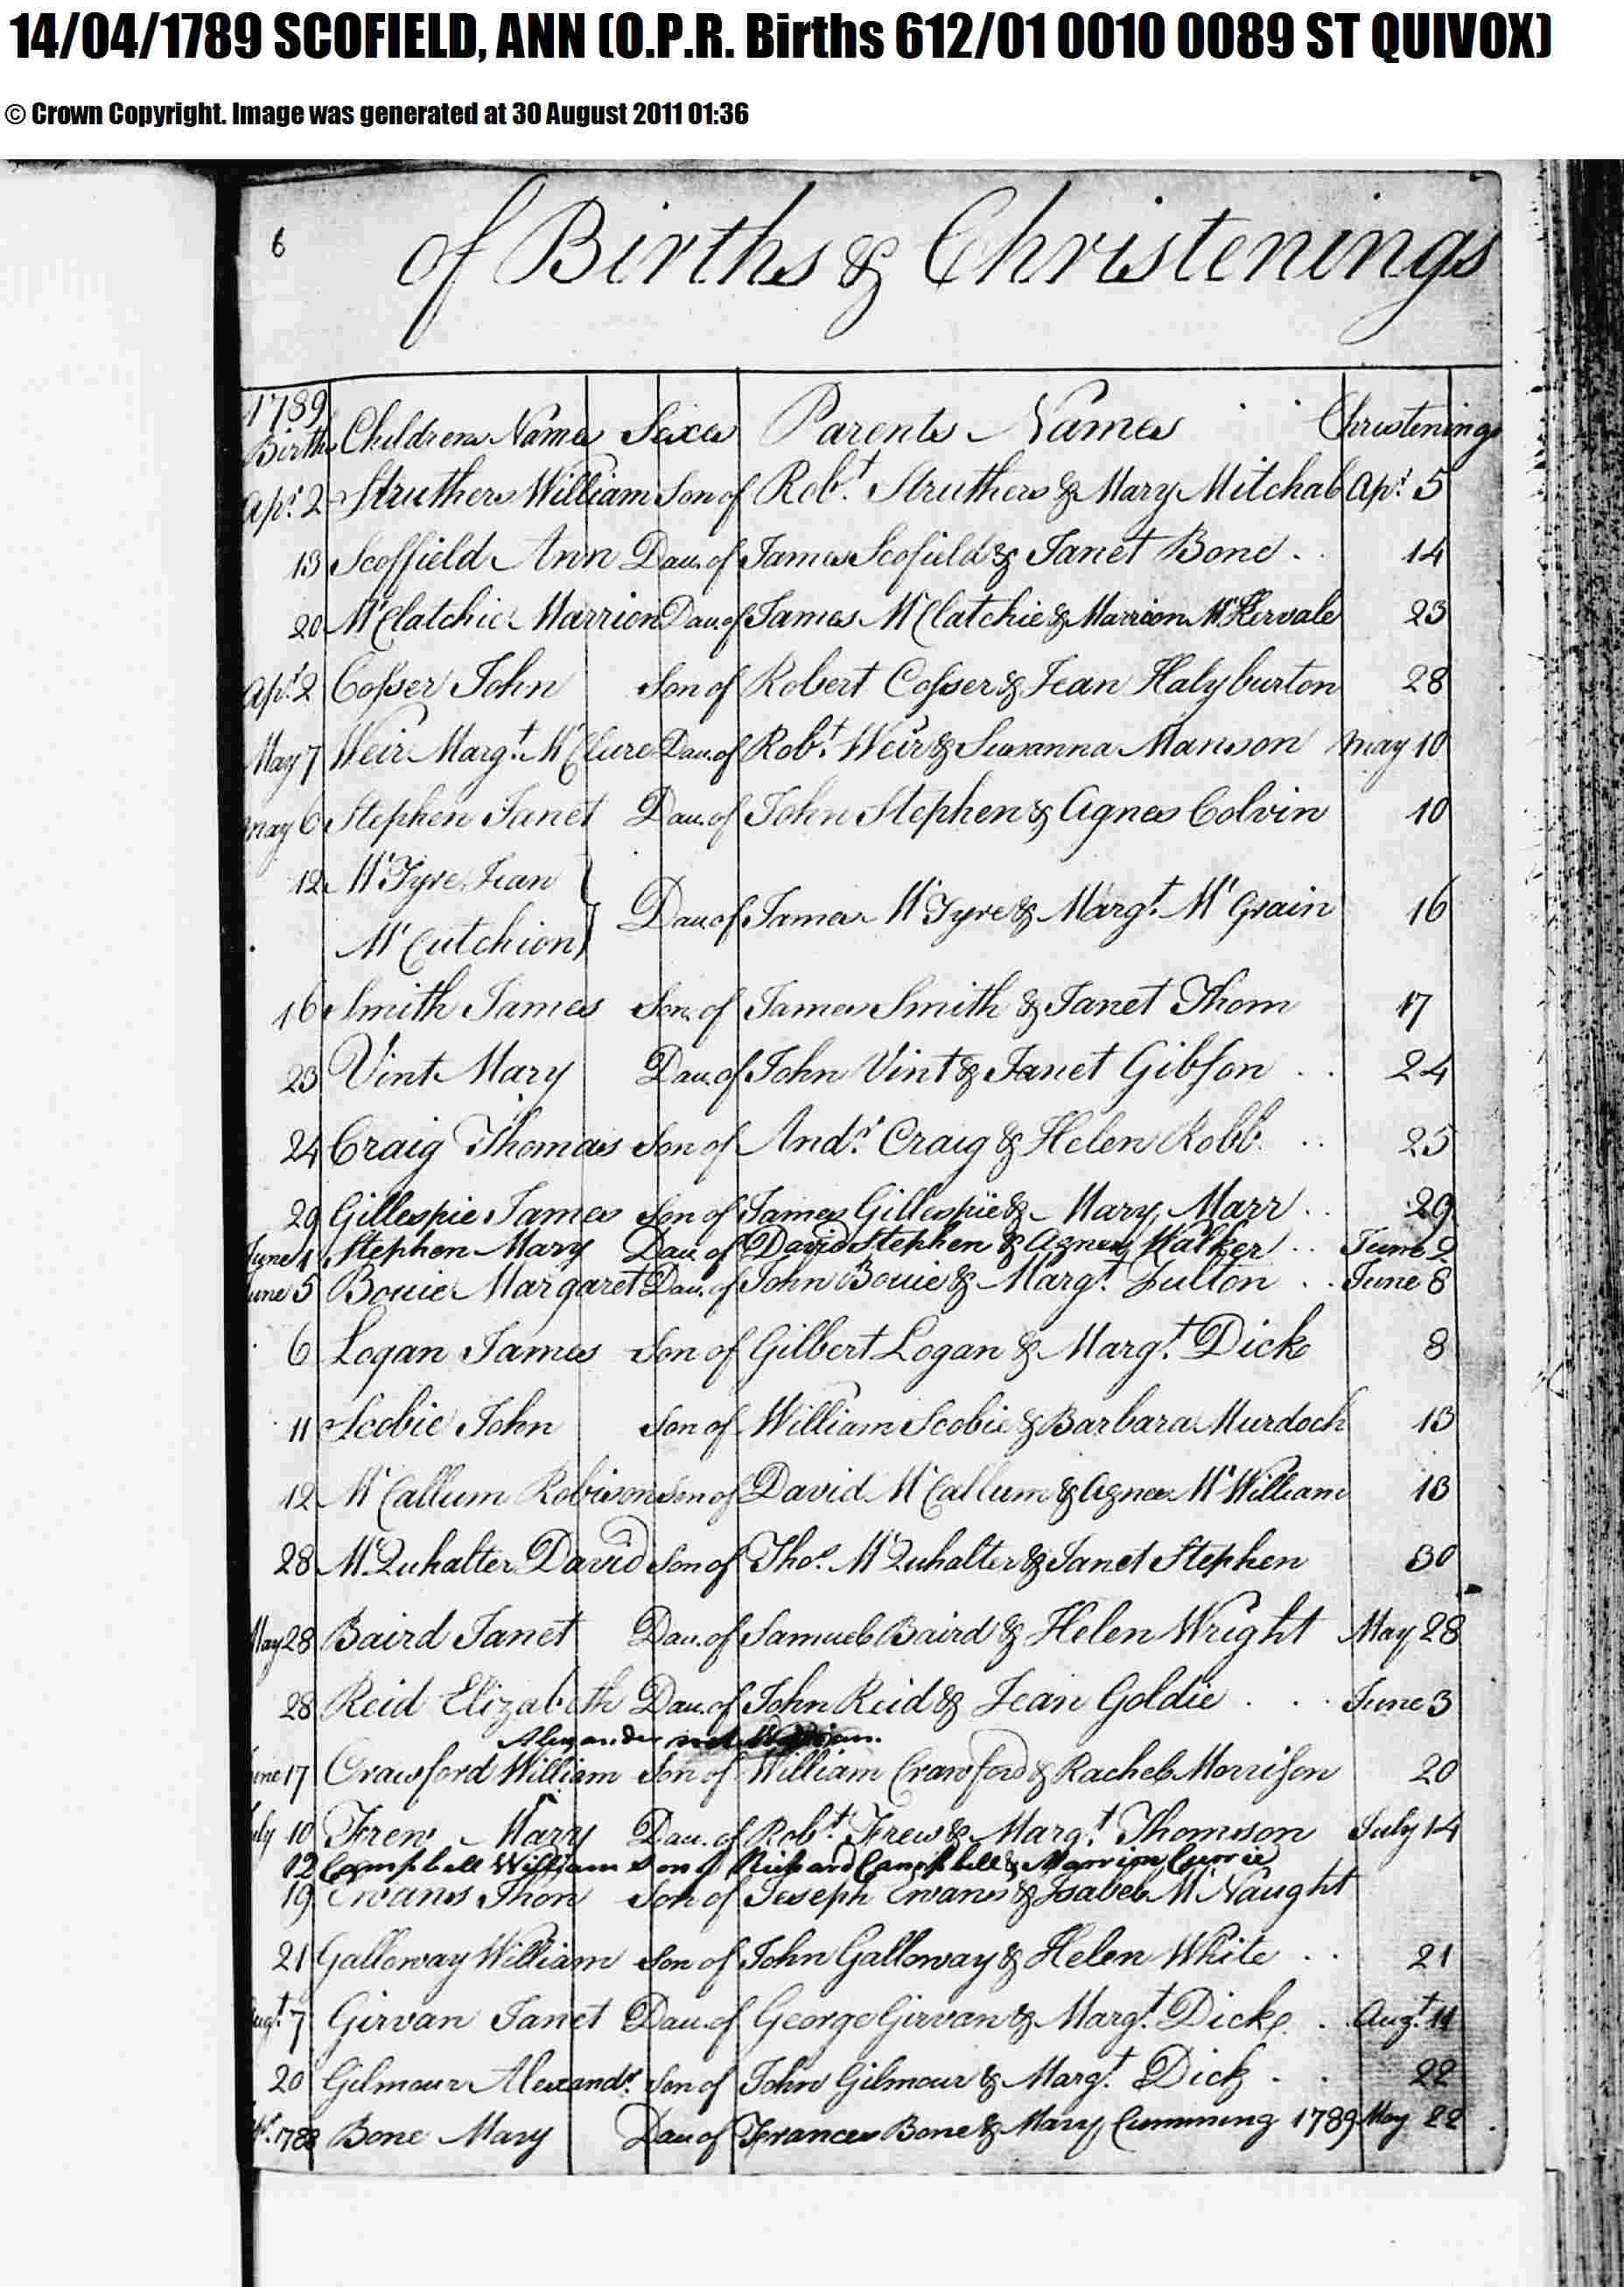 14/04/1789 SCOFIELD, ANN (O.P.R. Births 612/01 0010 0089 ST QUIVOX)
© Crown Copyright. Image was generated at 30 August 2011 01:36
6 of Births & Christenings
1789
Births Childrens Names Sexes Parents Names Christenings
Apr. 2 Struthers William Son of Robt. Struthers & Mary Mitchal Apr. 5
13 Scoffield Ann Dau. of James Scofield & Janet Bone 14
20 McClatchie Marrion Dau. of James McClatchie & Marrion 23
Apr. 2 Cosser John Son of Robert Cosser & Jean Halyburton 28
May 7 Weir Margt. McClure Dau. of Robt. Weir & Susanna Manson May 10
May 6 Stephen Janet Dau. of John Stephen & Agnes Colvin 10
12 McTyre Jean
McCutchion Dau. of James McTyre & Margt. McGrain 16
16 Smith James Son of James Smith & Janet Thom 17
23 Vint Mary Dau. of John Vint & Janet Gibson 24
24 Craig Thomas Son of Andw. Craig & Helen Robb. 25
29 Gillespie James Son of James Gillespie & Mary Marr 29
June 1 Stephen Mary Dau. of David Stephen & Agnes Walker June 2
June 5 Bouie Margaret Dau. of John Bouie & Margt. Fulton June 8
6 Logan James Son of Gilbert Logan & Margt. Dick 8
11 Scobie John Son of William Scobie & Barbara Murdoch 13
12 McCallum Robison Son of David McCallum & Agnes McWilliam 13
28 McQuhalter David Son of Thos. McQuhalter & Janet Stephen 30
May 28 Baird Janet Dau. of Samuel Baird & Helen Wright May 28
28 Reid Elizabeth Dau. of John Reid & Jean Goldie June 3
Alexander not William.
June 17 Crawford William Son of William Crawford & Rachel Morrison 20
July 10 Frew Mary Dau. of Robt. Frew & Margt. Thomson July 14
12 Campbell William Son of Richard Campbell & Marrion Currie
19 Ewans Thon Son of Joseph Ewans & Isabel McNaught
21 Galloway William Son of John Galloway & Helen White 21
Augt. 7 Girvan Janet Dau. of George Girvan & Margt. Dick Augt. 11
20 Gilmour Alexandr. Son of John Gilmour & Margt. Dick 22
1788 Bone Mary Dau of Frances Bone & Mary Cumming 1789 May 22